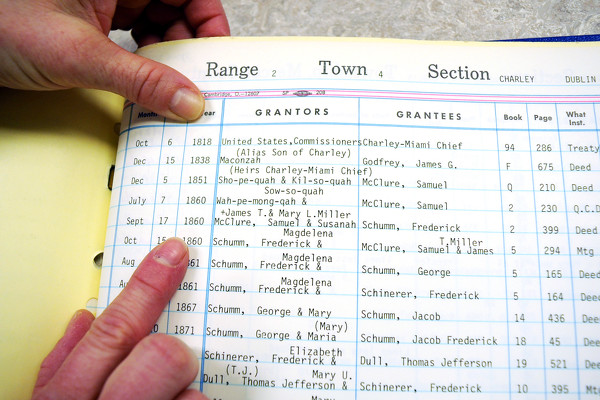 Range 2 Town 4 Section CHARLEY DUBLIN
Cambridge, O.-12807 SP 208
Month GRANTORS GRANTEES Book Page What Inst.
Oct 6 1818 United States,Commissioners Charley-Miami Chief 94 286 Treaty
(Alias Son of Charley)
Dec 15 1838 Maconzah Godfrey, James G. F 675 Deed
(Heirs Charley-Miami Chief)
Dec 5 1851 Sho-pe-quah & Kil-so-quah McClure, Samuel Q 210 Deed
Sow-so-quah
July 7 1860 Wah-pe-mong-qah & McClure, Samuel 2 230 Q.C.D
+James T.& Mary L.Miller
Sept 17 1860 McClure, Samuel & Susanah Schumm, Frederick 2 399 Deed
Magdelena T.Miller
Oct 15 1860 Schumm, Frederick & McClure, Samuel & James 5 294 Mtg
Magdelena
Aug 1861 Schumm, Frederick & Schumm, George 5 165 Deed
Magdelena
1861 Schumm, Frederick & Schinerer, Frederick 5 164 Deed
1867 Schumm, George & Mary Schumm, Jacob 14 436 Deed
(Mary)
1871 Schumm, George & Maria Schumm, Jacob Frederick 18 45 Deed
Elizabeth
Schinerer, Frederick & Dull, Thomas Jefferson 19 521 Deed
(T.J.) Mary U.
Dull, Thomas Jefferson & Schinerer, Frederick 10 395 Mtg
Mary